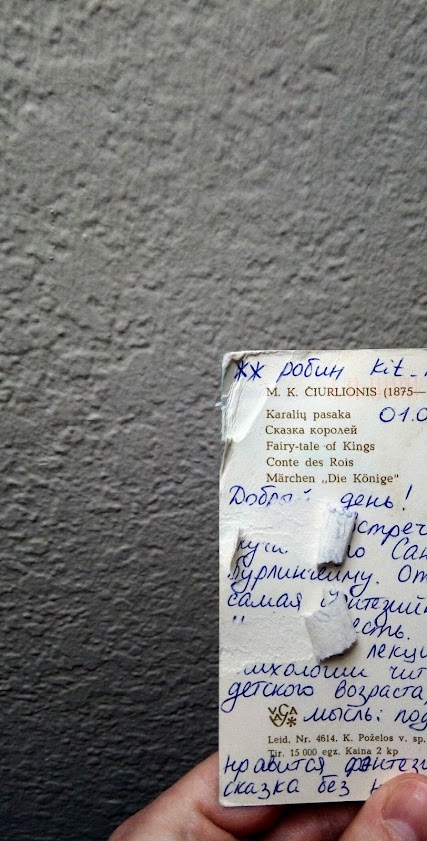 ЖЖ робин kit_
M. K. ČIURLIONIS (1875—
Karalių pasaka 01.0
Сказка королей
Fairy-tale of Kings
Conte des Rois
Märchen „Die Könige"
Добрый день!
стреч
Сан
бурлинеиму. От
самая
есть.
лекци
ихологии чит
детского возраста,
мысль: под
Leid. Nr. 4614. K. Poželos v. sp.
Tir. 15 000 egz. Kaina 2 kp
нравится фентези
сказка без